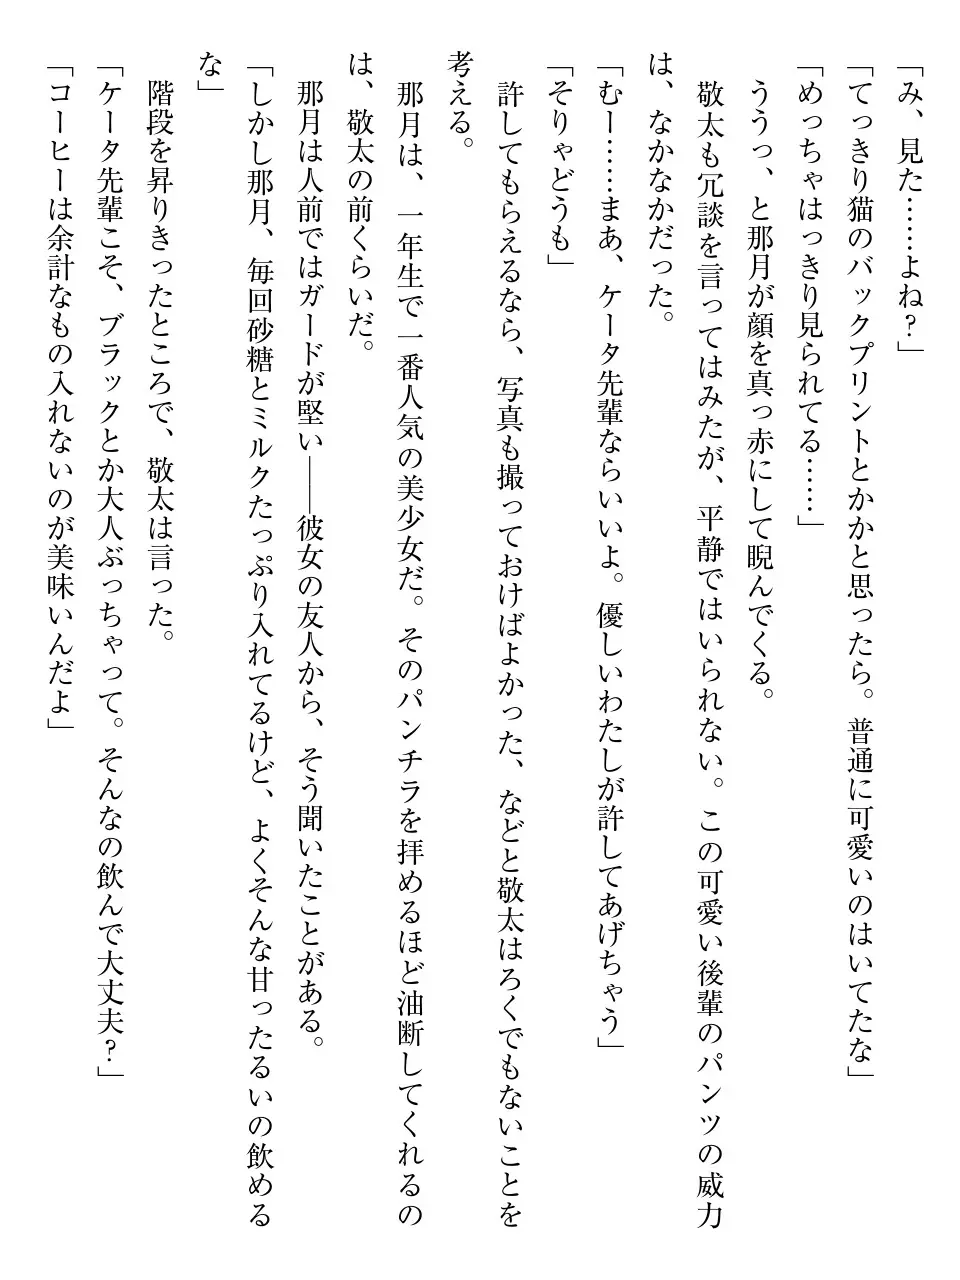 「み、見た……よね？」
「てっきり猫のバックプリントとかかと思ったら。普通に可愛いのはいてたな」
「めっちゃはっきり見られてる……」
ううっ、と那月が顔を真っ赤にして睨んでくる。
敬太も冗談を言ってはみたが、平静ではいられない。この可愛い後輩のパンツの威力
は、なかなかだった。
「むー……まあ、ケータ先輩ならいいよ。優しいわたしが許してあげちゃう」
「そりゃどうも」
許してもらえるなら、写真も撮っておけばよかった、などと敬太はろくでもないことを
考える。
那月は、一年生で一番人気の美少女だ。そのパンチラを拝めるほど油断してくれるの
は、敬太の前くらいだ。
那月は人前ではガードが堅い――彼女の友人から、そう聞いたことがある。
「しかし那月、毎回砂糖とミルクたっぷり入れてるけど、よくそんな甘ったるいの飲める
な」
階段を昇りきったところで、敬太は言った。
「ケータ先輩こそ、ブラックとか大人ぶっちゃって。そんなの飲んで大丈夫？」
「コーヒーは余計なもの入れないのが美味いんだよ」